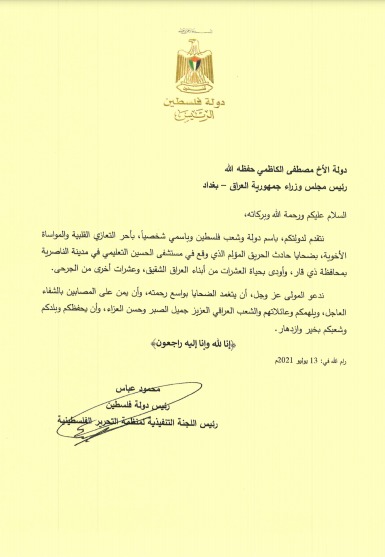 دولة فلسطين
الرئيس
دولة الأخ مصطفى الكاظمي حفظه الله
رئيس مجلس وزراء جمهورية العراق – بغداد
السلام عليكم ورحمة الله وبركاته،
نتقدم لدولتكم، باسم دولة وشعب فلسطين وباسمي شخصياً، بأحر التعازي القلبية والمواساة
الأخوية، بضحايا حادث الحريق المؤلم الذي وقع في مستشفى الحسين التعليمي في مدينة الناصرية
بمحافظة ذي قار، وأودى بحياة العشرات من أبناء العراق الشقيق، وعشرات أخرى من الجرحى.
ندعو المولى عز وجل، أن يتغمد الضحايا بواسع رحمته، وأن يمن على المصابين بالشفاء
العاجل، ويلهمكم وعائلاتهم والشعب العراقي العزيز جميل الصبر وحسن العزاء، وأن يحفظكم وبلدكم
وشعبكم بخير وازدهار.
﴿إنا لله وإنا إليه راجعون﴾
رام الله في: 13 يوليو 2021م
محمود عباس
رئيس دولة فلسطين
رئيس اللجنة التنفيذية لمنظمة التحرير الفلسطينية